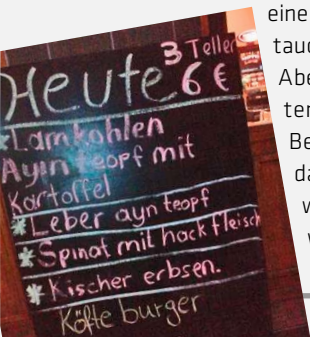 3 Teller
Heute 6 €
*Lamkohlen
Ayin teopf mit
Kartoffel
*Leber ayn teopf
*Spinat mit hack fleisch
*Kischer erbsen.
Köfte burger
eine
tauc
Abe
ten
Be
da